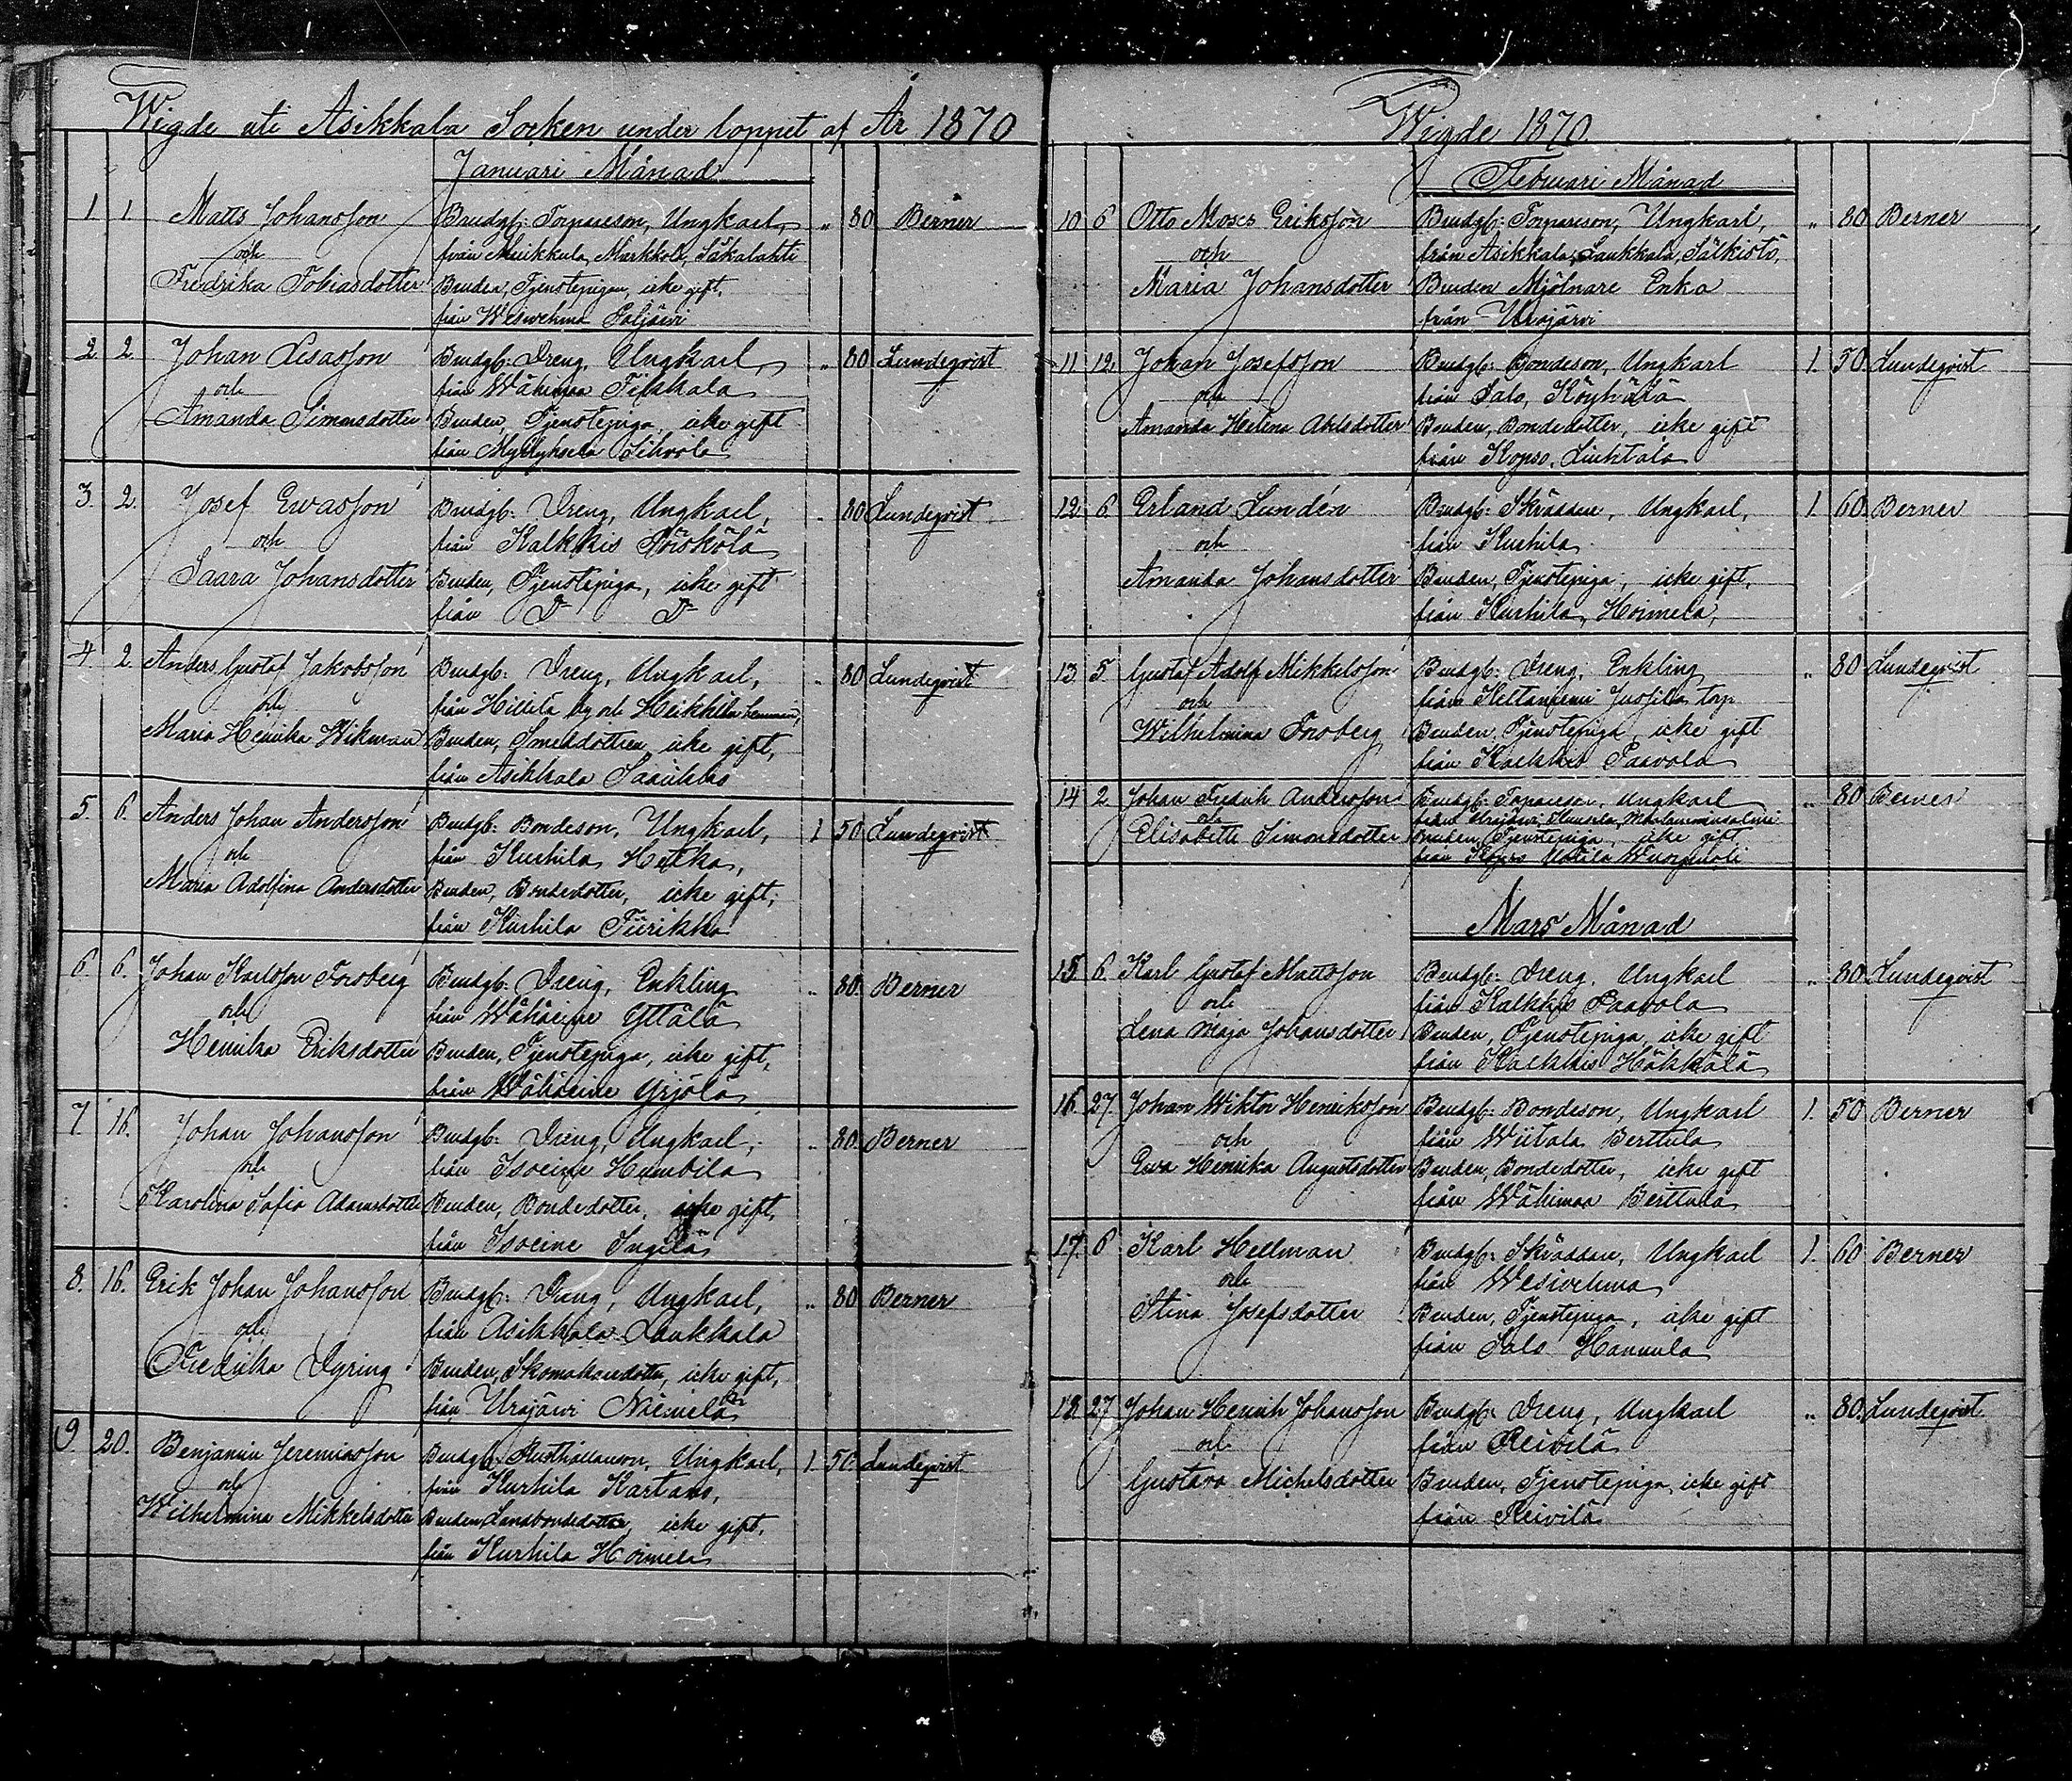 Wigde uti Asikkala Socken under loppet af År 1870
Januari Månad
1 1. Matts Johansson Brudg: Torpareson, Ungkarl, " 80 Berner
och från Muikkula, Markkola, Säkalahti
Fredrika Tobiasdotter Bruden, Tjenstepigan, icke gift,
från Wesivehma Paljärvi
2 2 Johan Esasson Brudg: Dreng, Ungkarl, " 80 Lundeqvist
och från Wähimaa Tikkala
Amanda Simonsdotter Bruden, Tjenstepiga, icke gift
från Myllykselä Sihvola
3. 2. Josef Ewasson Brudg: Dreng, Ungkarl, " 80 Lundeqvist
och från Kalkkis
Saara Johansdotter Bruden, Tjenstepiga, icke gift
från D:o D:o
4. 2. Anders Gustaf Jakobsson Brudg: Dreng, Ungkarl, " 80 Lundeqvist
och från Hillilä by och Heikkilä hemman,
Maria Henrika Wikman Bruden, Smeddottren, icke gift,
från Asikkala
5. 6. Anders Johan Andersson Brudg: Bondeson, Ungkarl, 1 50 Lundeqvist
och från Kurhila, Heikka,
Maria Adolfina Andersdotter Bruden, Bondedotter, icke gift,
från Kurhila Tiirikka
6. 6. Johan Karlsson Forsberg Brudg: Dreng, Enkling " 80. Berner
och från Wähäeine Yttälä
Henrika Eriksdotter Bruden, Tjenstepiga, icke gift,
från Wähäeine Yrjölä
7. 16. Johan Johansson Brudg: Dreng, Ungkarl, " 80. Berner
och från Isoeine Humbila
Karolina Sofia Adamsdotter Bruden, Bondedotter, icke gift,
från Isoeine Ingilä
8. 16. Erik Johan Johansson Brudg: Dreng, Ungkarl, " 80 Berner
och från Asikkala Laukkala
Fredrika Dyring Bruden, Skomakaredotter, icke gift,
från Urajärvi Niemelä
9. 20. Benjamin Jeremiasson Brudg: Rusthållareson, Ungkarl, 1. 50. Lundeqvist
och från Kurhila Kartano,
Wilhelmina Mikkelsdotter Bruden Landbondedotter, icke gift,
från Kurhila Hoimela
Wigde 1870.
Februari Månad
10 6 Otto Moses Eriksson Brudg: Torpareson, Ungkarl, " 80 Berner
och från Asikkala, Laukkala, Sälkistö,
Maria Johansdotter Bruden Mjölnare Enka
från Urajärvi
11 12. Johan Josefsson Brudg: Bondeson, Ungkarl 1. 50. Lundeqvist
och från Salo, Köyhälä
Amanda Helena Abelsdotter Bruden, Bondedotter, icke gift
från Kopso, Liuhtala
12. 6. Erland Lundén Brudg: Skräddare, Ungkarl, 1 60. Berner
och från Kurhila
Amanda Johansdotter Bruden, Tjenstepiga, icke gift,
från Kurhila, Hoimela,
13. 5. Gustaf Adolf Mikkelsson Brudg: Dreng, Enkling " 80 Lundeqvist
och från Keltaniemi Jussila torp
Wilhelmina Forsberg Bruden, Tjenstepiga, icke gift
från Kalkkis Paavola
14 2 Johan Fredrik Andersson Brudg: Torpareson, Ungkarl " 80 Berner
och från Urajärvi,
Elisabeth Simonsdotter Bruden, Tjenstepiga, icke gift
från Mattila
Mars Månad
15 6 Karl Gustaf Mattsson Brudg: Dreng, Ungkarl " 80 Lundeqvist
och från Kalkkis Paavola
Lena Maja Johansdotter Bruden, Tjenstepiga, icke gift
från Kalkkis Häkkälä
16. 27. Johan Wiktor Henriksson Brudg: Bondeson, Ungkarl 1. 50 Berner
och från Wiitala Berttula
Ewa Henrika Augustsdotter Bruden, Bondedotter, icke gift
från Wähimaa Berttula
17. 6 Karl Hellman Brudg: Skräddare, Ungkarl 1. 60 Berner
och från Wesivehma
Stina Josefsdotter Bruden, Tjenstepiga, icke gift
från Salo Hannula
18. 27 Johan Henrik Johansson Brudg: Dreng, Ungkarl " 80. Lundeqvist
och från Reivilä
Gustava Michelsdotter Bruden, Tjenstepiga, icke gift
från Reivilä